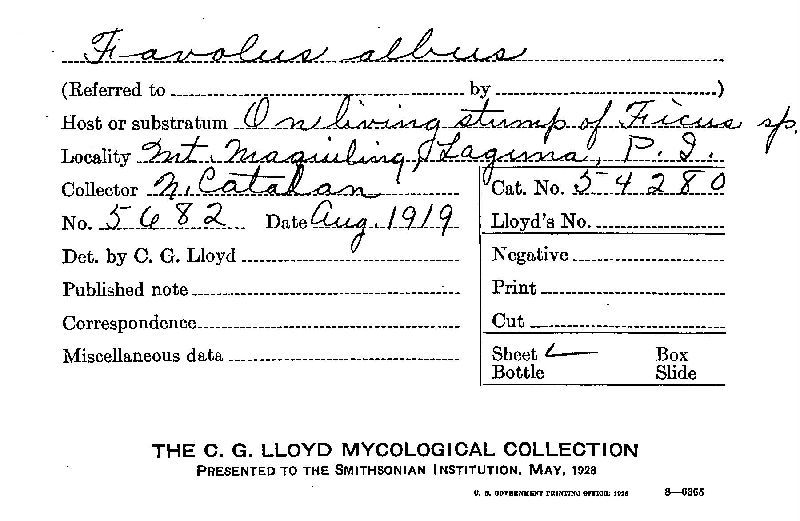 Favolus albus
(Referred to by )
Host or substratum On living stump of Ficus sp.
Locality Mt. Maquiling, Laguna, P. I.
Collector N. Catalan Cat. No. 54280
No. 5682 Date Aug. 1919 Lloyd's No.
Det. by C. G. Lloyd Negative
Published note Print
Correspondence Cut
Miscellaneous data Sheet Box
Bottle Slide
THE C. G. LLOYD MYCOLOGICAL COLLECTION
PRESENTED TO THE SMITHSONIAN INSTITUTION, MAY, 1928
U. S. GOVERNMENT PRINTING OFFICE: 1928 8—6365